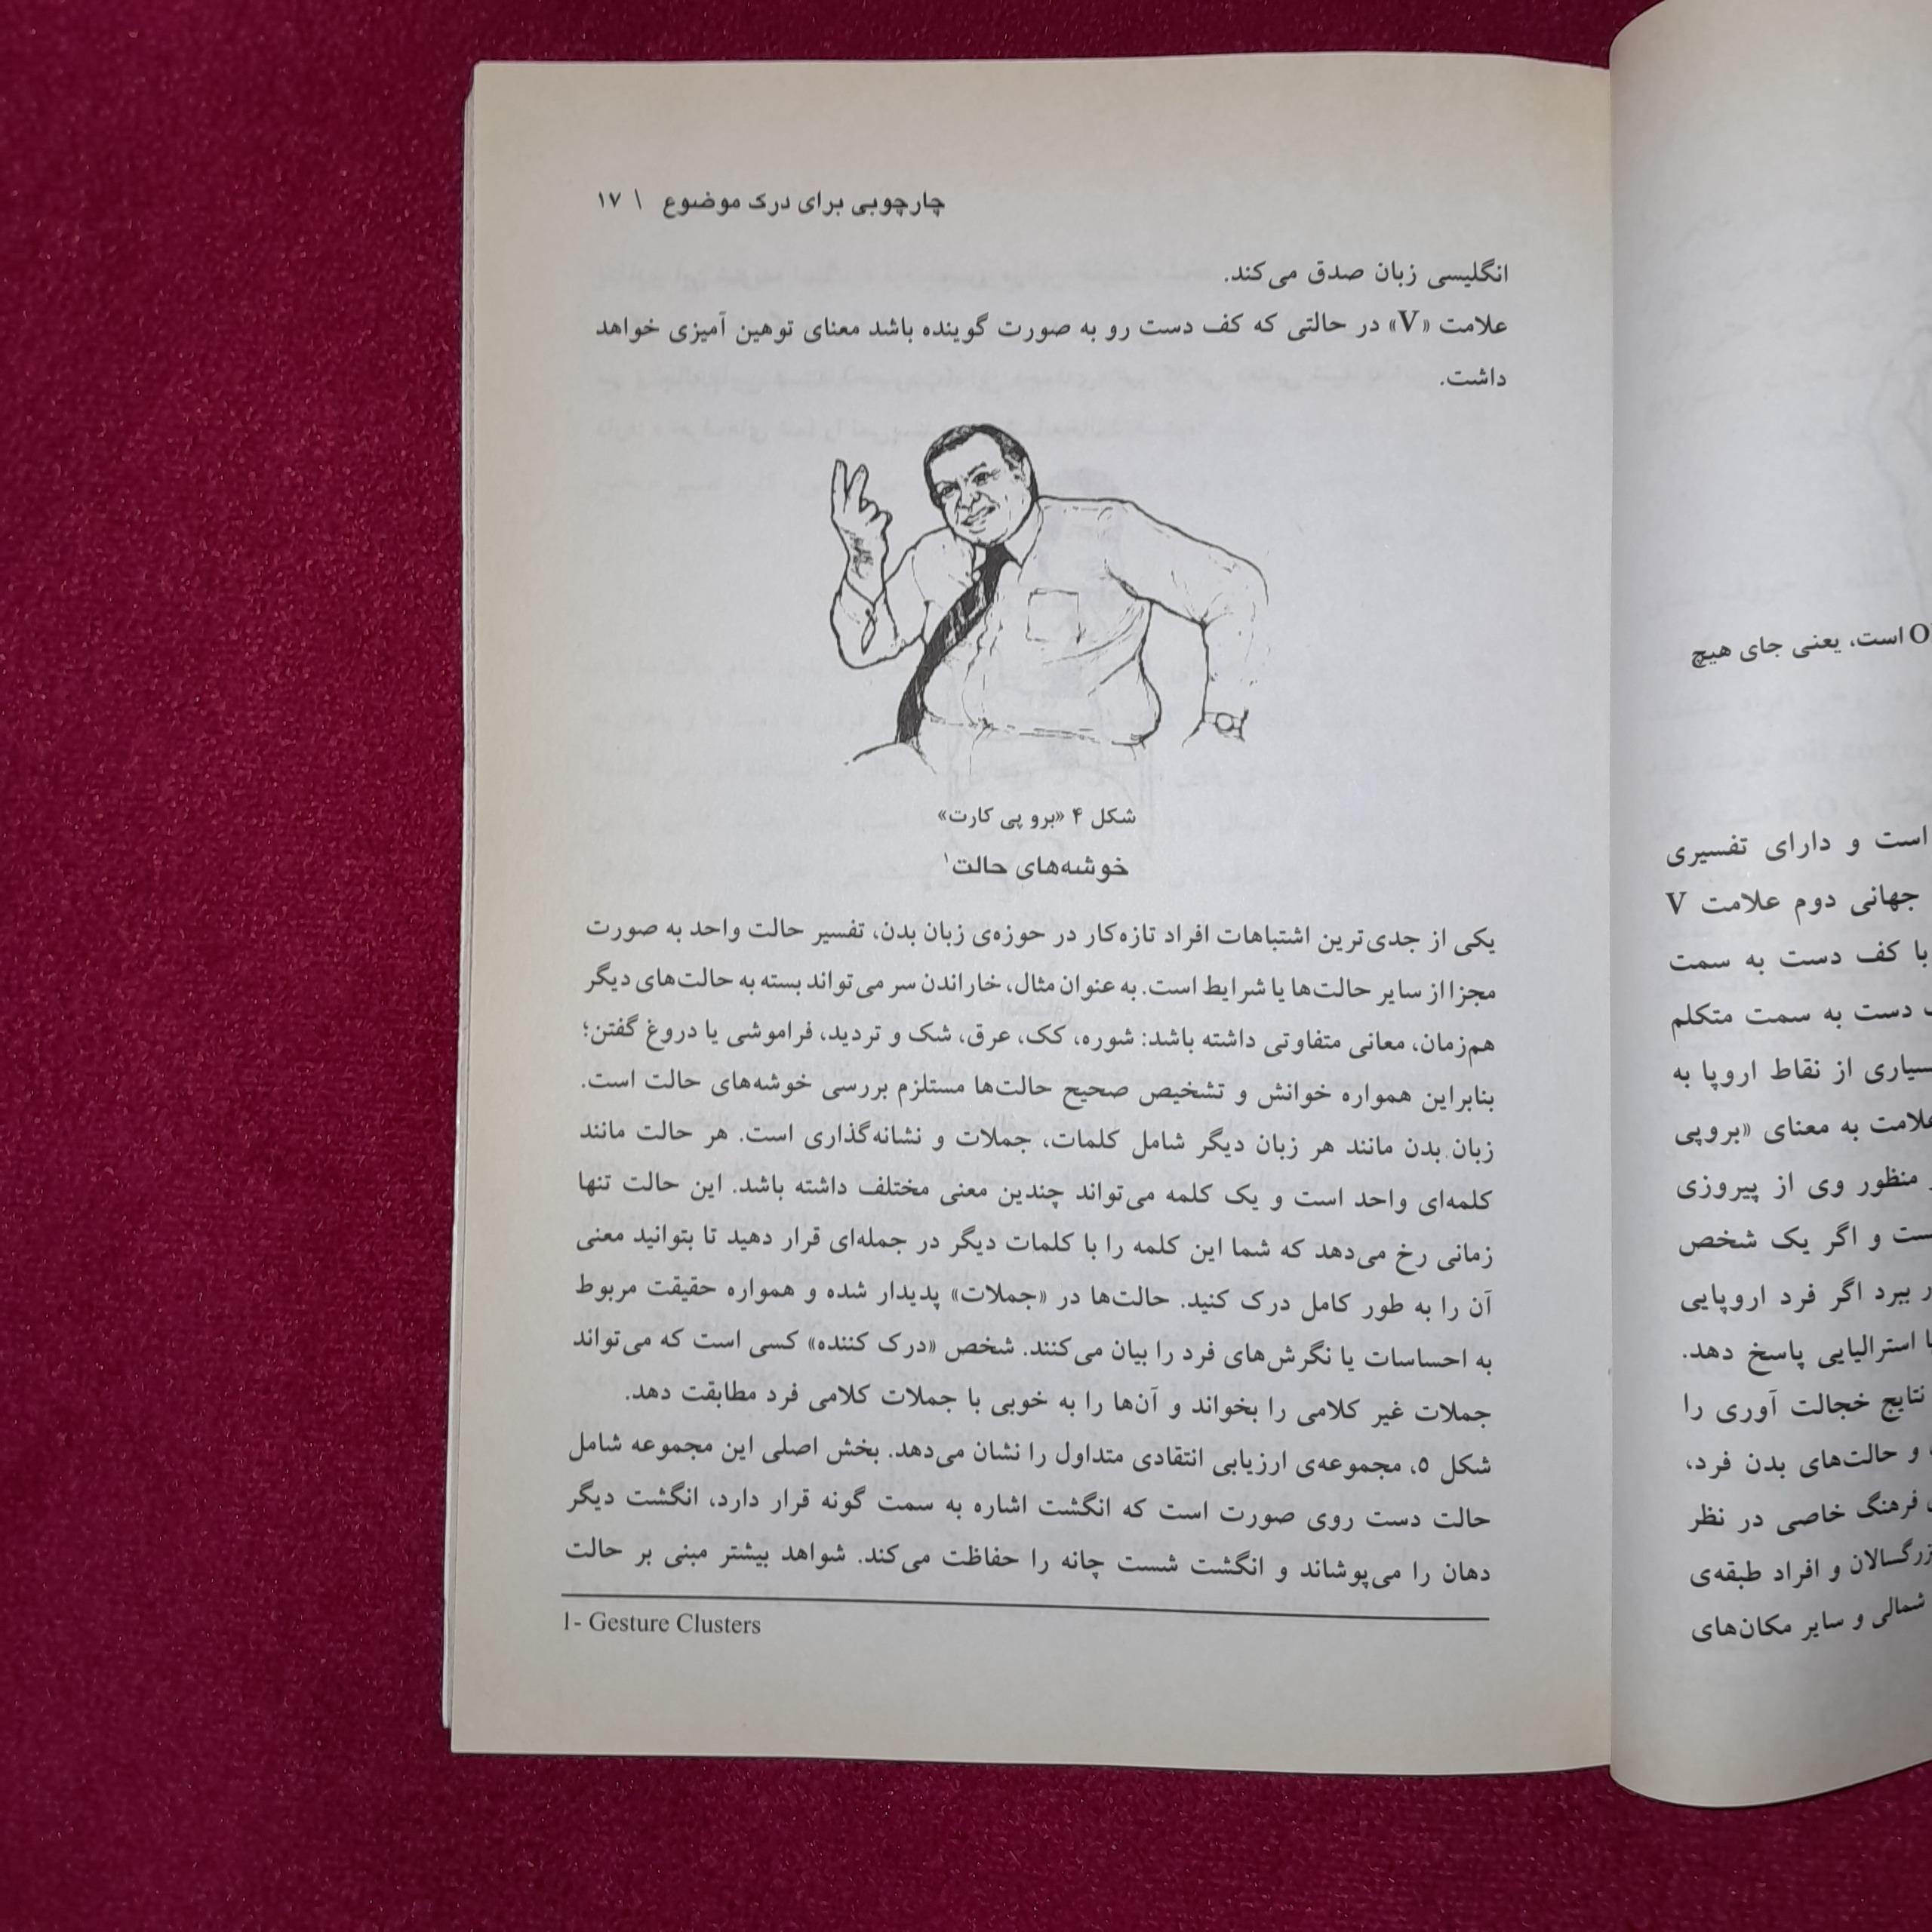 چارچوبی برای درک موضوع \ ۱۷
انگلیسی زبان صدق می‌کند.
علامت «V» در حالتی که کف دست رو به صورت گوینده باشد معنای توهین آمیزی خواهد
داشت.
شکل ۴ «برو پی کارت»
خوشه‌های حالت۱
یکی از جدی‌ترین اشتباهات افراد تازه‌کار در حوزه‌ی زبان بدن، تفسیر حالت واحد به صورت
مجزا از سایر حالت‌ها یا شرایط است. به عنوان مثال، خاراندن سر می‌تواند بسته به حالت‌های دیگر
هم‌زمان، معانی متفاوتی داشته باشد: شوره، کک، عرق، شک و تردید، فراموشی یا دروغ گفتن؛
بنابراین همواره خوانش و تشخیص صحیح حالت‌ها مستلزم بررسی خوشه‌های حالت است.
زبان بدن مانند هر زبان دیگر شامل کلمات، جملات و نشانه‌گذاری است. هر حالت مانند
کلمه‌ای واحد است و یک کلمه می‌تواند چندین معنی مختلف داشته باشد. این حالت تنها
زمانی رخ می‌دهد که شما این کلمه را با کلمات دیگر در جمله‌ای قرار دهید تا بتوانید معنی
آن را به طور کامل درک کنید. حالت‌ها در «جملات» پدیدار شده و همواره حقیقت مربوط
به احساسات یا نگرش‌های فرد را بیان می‌کنند. شخص «درک کننده» کسی است که می‌تواند
جملات غیر کلامی را بخواند و آن‌ها را به خوبی با جملات کلامی فرد مطابقت دهد.
شکل ۵، مجموعه‌ی ارزیابی انتقادی متداول را نشان می‌دهد. بخش اصلی این مجموعه شامل
حالت دست روی صورت است که انگشت اشاره به سمت گونه قرار دارد، انگشت دیگر
دهان را می‌پوشاند و انگشت شست چانه را حفاظت می‌کند. شواهد بیشتر مبنی بر حالت
1- Gesture Clusters
است، یعنی جای هیچ
است و دارای تفسیری
جهانی دوم علامت V
با کف دست به سمت
دست به سمت متکلم
از نقاط اروپا به
به معنای «بروپی
منظور وی از پیروزی
و اگر یک شخص
ببرد اگر فرد اروپایی
استرالیایی پاسخ دهد.
نتایج خجالت آوری را
و حالت‌های بدن فرد،
فرهنگ خاصی در نظر
و افراد طبقه‌ی
شمالی و سایر مکان‌های